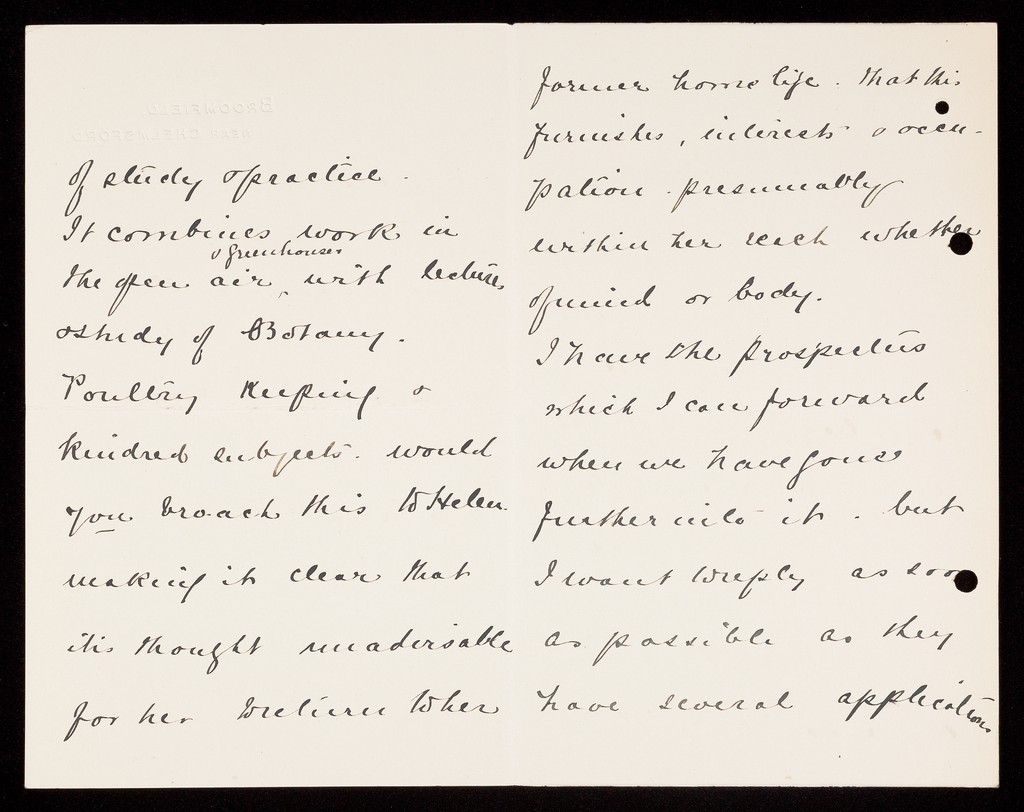 BROOMFIELD,
NEAR CHELMSFORD
of study & practice.
It combines work in
& greenhouses
the open air, with lectures
& study of Botany.
Poultry Keeping &
kindred subjects. would
you broach this to Helen.
making it clear that
it is thought unadvisable
for her to return to her
former home life. that this
furnishes, interests & occu-
pation. presumably
within her reach whether
of mind or body.
I have the prospectus
which I can forward
when we have gone
further into it. but
I want to reply as soon
as possible as they
have several applications